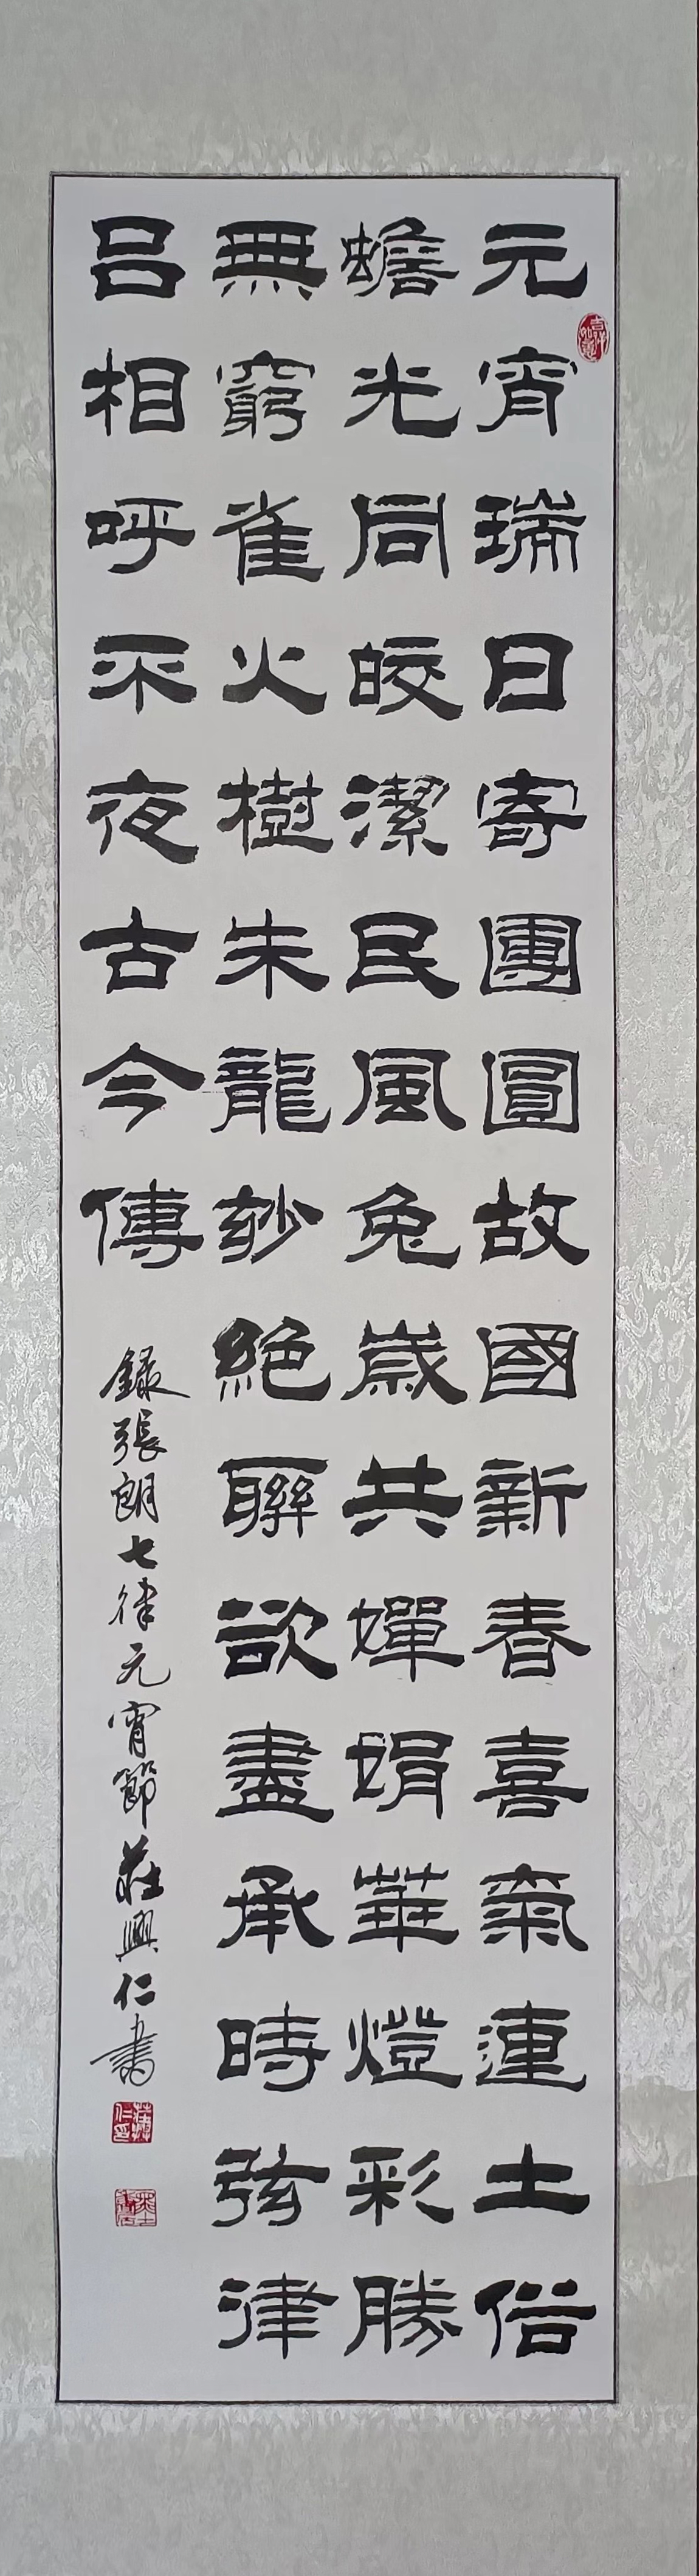 元宵瑞日寄團圓故國新春喜氣連土俗
蟾光同皎潔民風兔歲共嬋娟華燈彩勝
無窮雀火樹朱龍妙絕聯欲盡承時弦律
呂相呼不夜古今傳
錄張朗七律元宵節莊興仁書